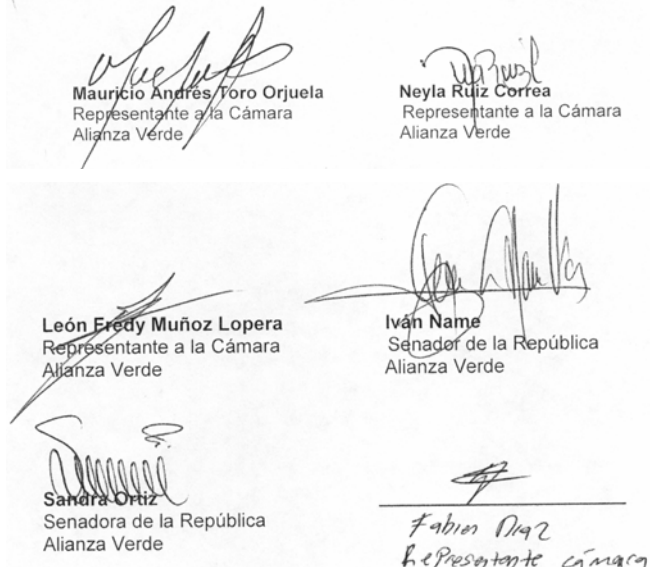 Mauricio Andrés Toro Orjuela
Representante a la Cámara
Alianza Verde
Neyla Ruiz Correa
Representante a la Cámara
Alianza Verde
León Fredy Muñoz Lopera
Representante a la Cámara
Alianza Verde
Iván Name
Senador de la República
Alianza Verde
Sandra Ortiz
Senadora de la República
Alianza Verde
Fabian Diaz
Representante cámara